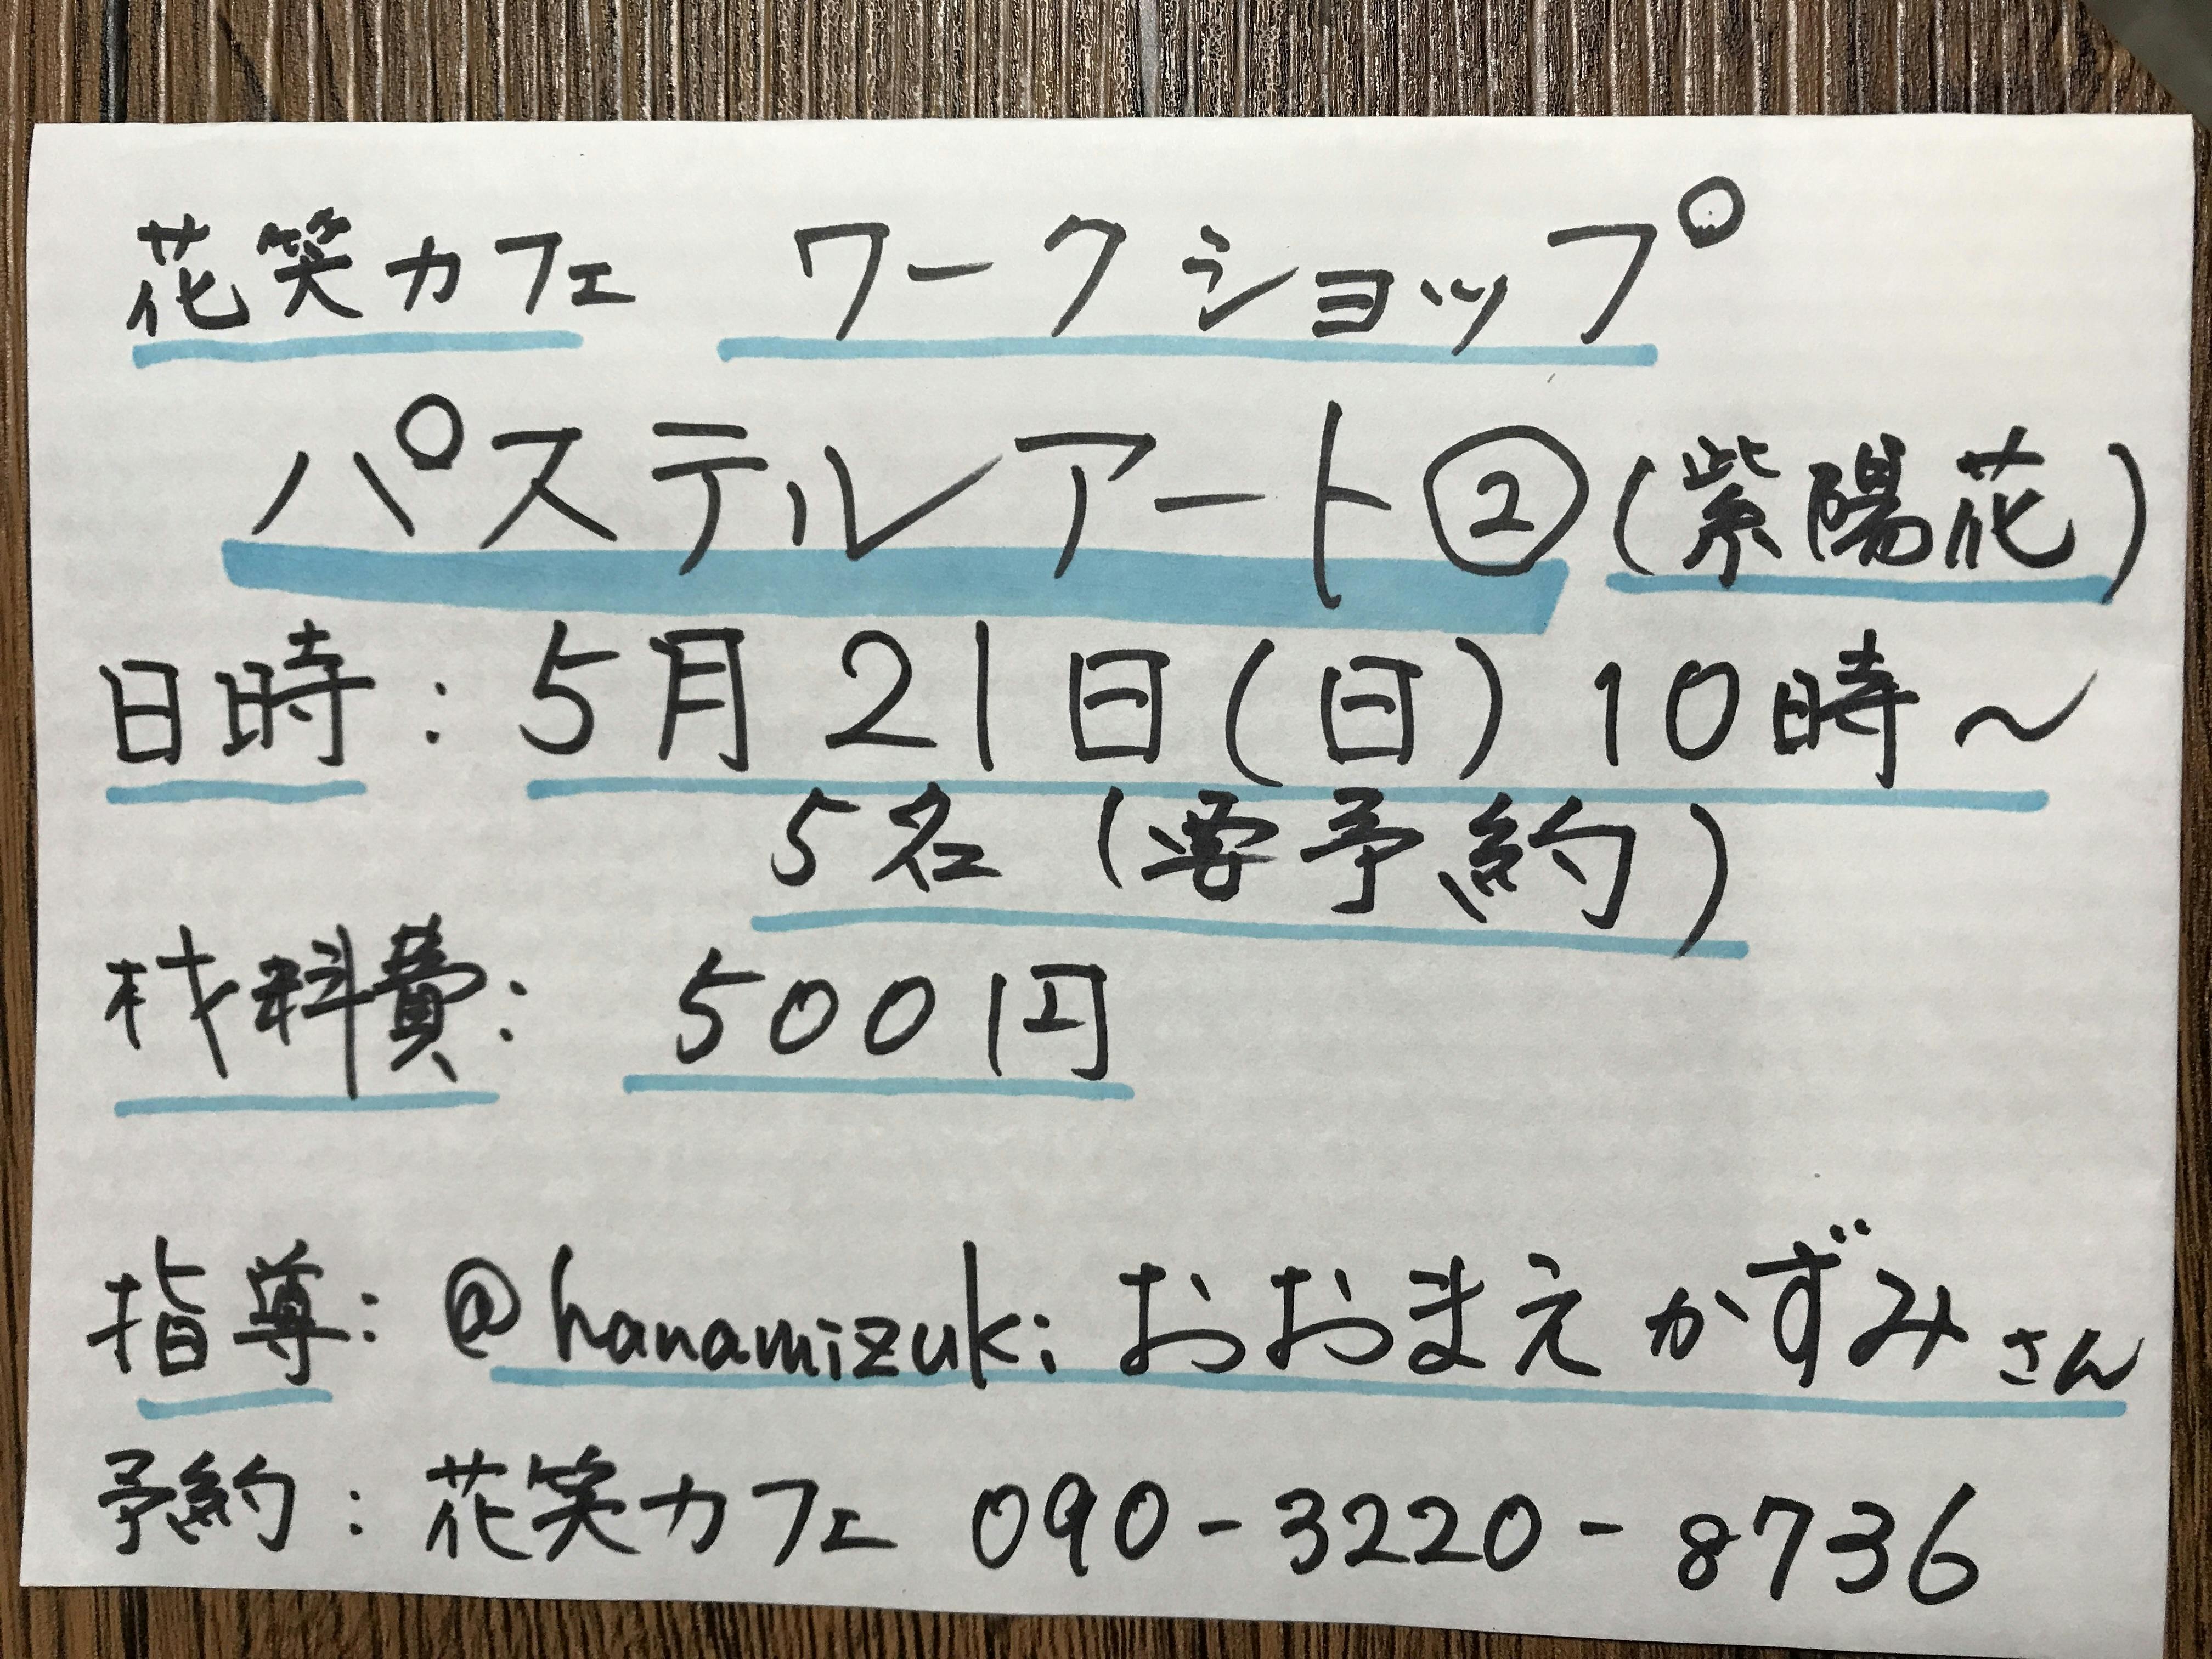 花笑カフェ ワークショップ
パステルアート②(紫陽花)
日時:5月21日(日)10時～
5名(要予約)
材料費:500円
指導:@hanamizuki おおまえかずみさん
予約:花笑カフェ 090-3220-8736